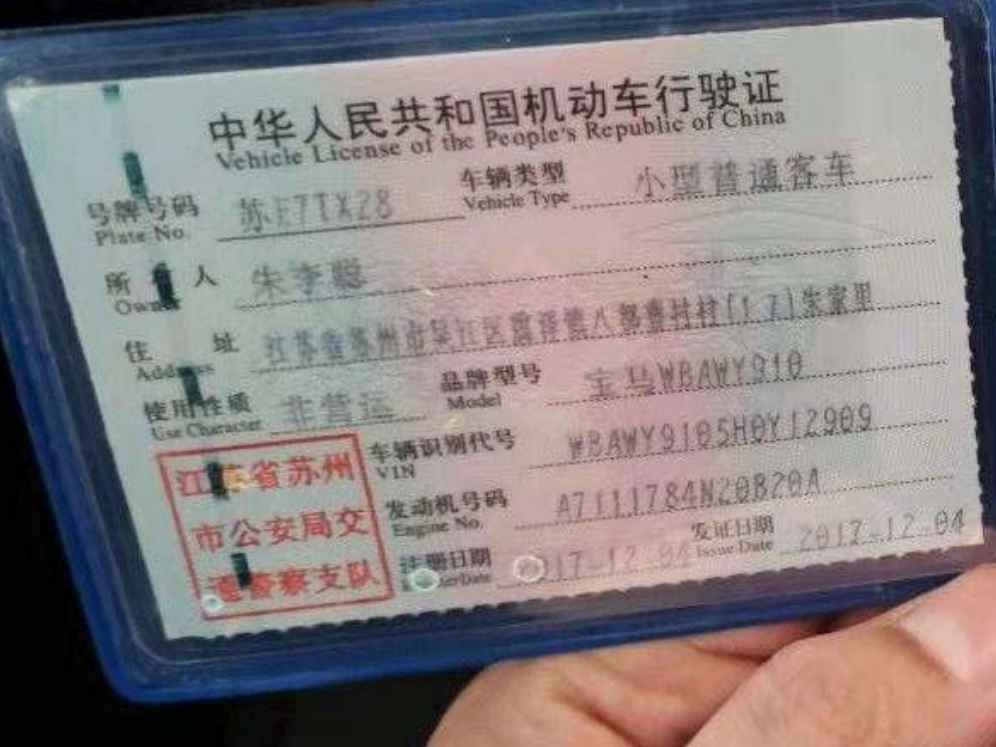 中华人民共和国机动车行驶证
Vehicle License of the People's Republic of China
号牌号码 苏E7TX28 车辆类型 小型普通客车
Plate No. Vehicle Type
所 人 朱李聪
Owner
住 址 江苏省苏州市吴江区震泽镇八都 村(17)朱家里
Address
使用性质 非营运 品牌型号 宝马WBAWY910
Use Character Model
车辆识别代号 WBAWY9105H0Y12909
VIN
发动机号码 A7111784N20B20A
Engine No.
注册日期 2017-12-04 发证日期 2017-12-04
Register Date Issue Date
江苏省苏州
市公安局交
通警察支队